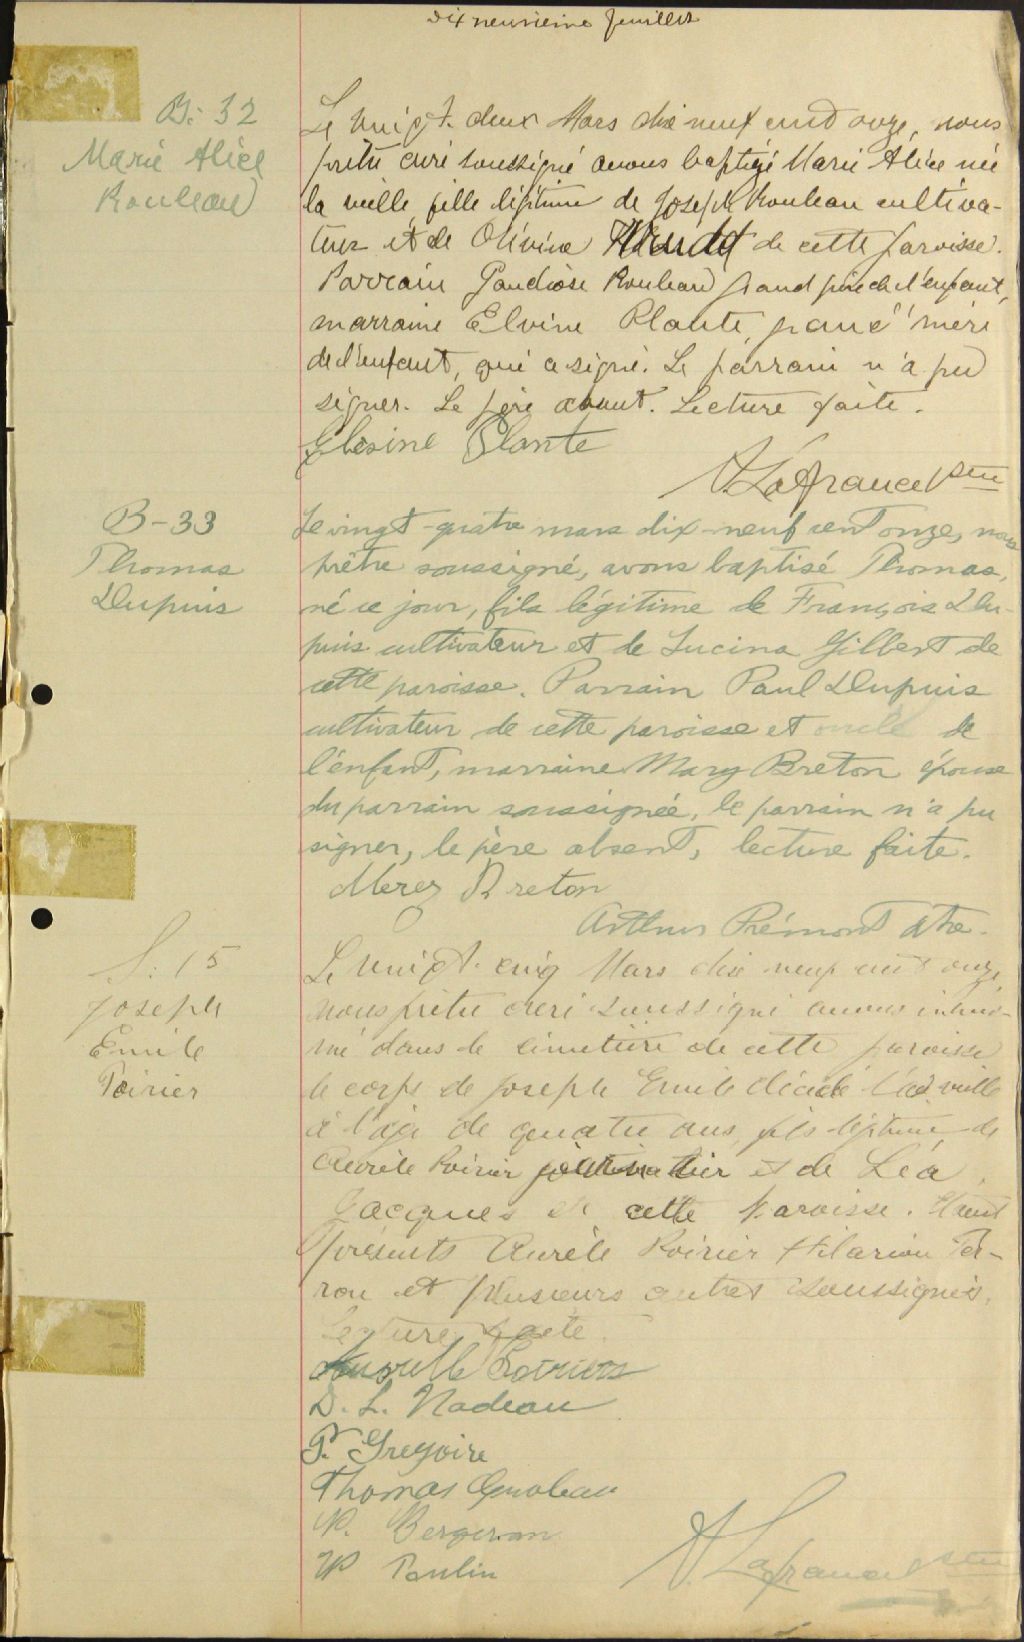 Dix neuvième feuillet
B: 32
Marie Alice
Rouleau
Le vingt-deux Mars dix neuf cent onze, nous
prêtre curé soussigné avons baptisé Marie Alice née
la veille, fille légitime de Joseph Rouleau cultiva-
teur et de Olivine de cette paroisse.
Parrain Gaudiose Rouleau grand père de l'enfant,
marraine Elvine Plante, grand' mère
de l'enfant, qui a signé. Le parrain n'a pu
signer. Le père absent. Lecture faite.
Plante
A. Lafrance ptre
B-33
Thomas
Dupuis
Le vingt-quatre mars dix-neuf cent onze, nous
prêtre soussigné, avons baptisé Thomas,
né ce jour, fils légitime de François Du-
puis cultivateur et de Lucina Gilbert de
cette paroisse. Parrain Paul Dupuis
cultivateur de cette paroisse et oncle de
l'enfant, marraine Mary Breton épouse
du parrain soussignée, le parrain n'a pu
signer, le père absent, lecture faite.
Merez Breton
Arthur Prémont Ptre.
S: 15
Joseph
Emile
Poirier
Le vingt-cinq Mars dix neuf cent onze,
nous prêtre curé soussigné avons inhu-
mé dans le cimetière de cette paroisse
le corps de Joseph Emile décédé l'avant veille
à l'âge de quatre ans, fils légitime de
Aurèle Poirier et de Léa
Jacques de cette paroisse. Etaient
présents Aurèle Poirier Hilarion Per-
ron et plusieurs autres soussignés.
Lecture faite.
D. L. Nadeau
P. Gregoire
Thomas
N. Bergeron
W Poulin
A. Lafrance ptre